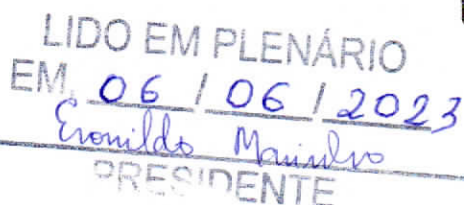 LIDO EM PLENÁRIO
EM, 06 / 06 / 2023
Eronildo
PRESIDENTE